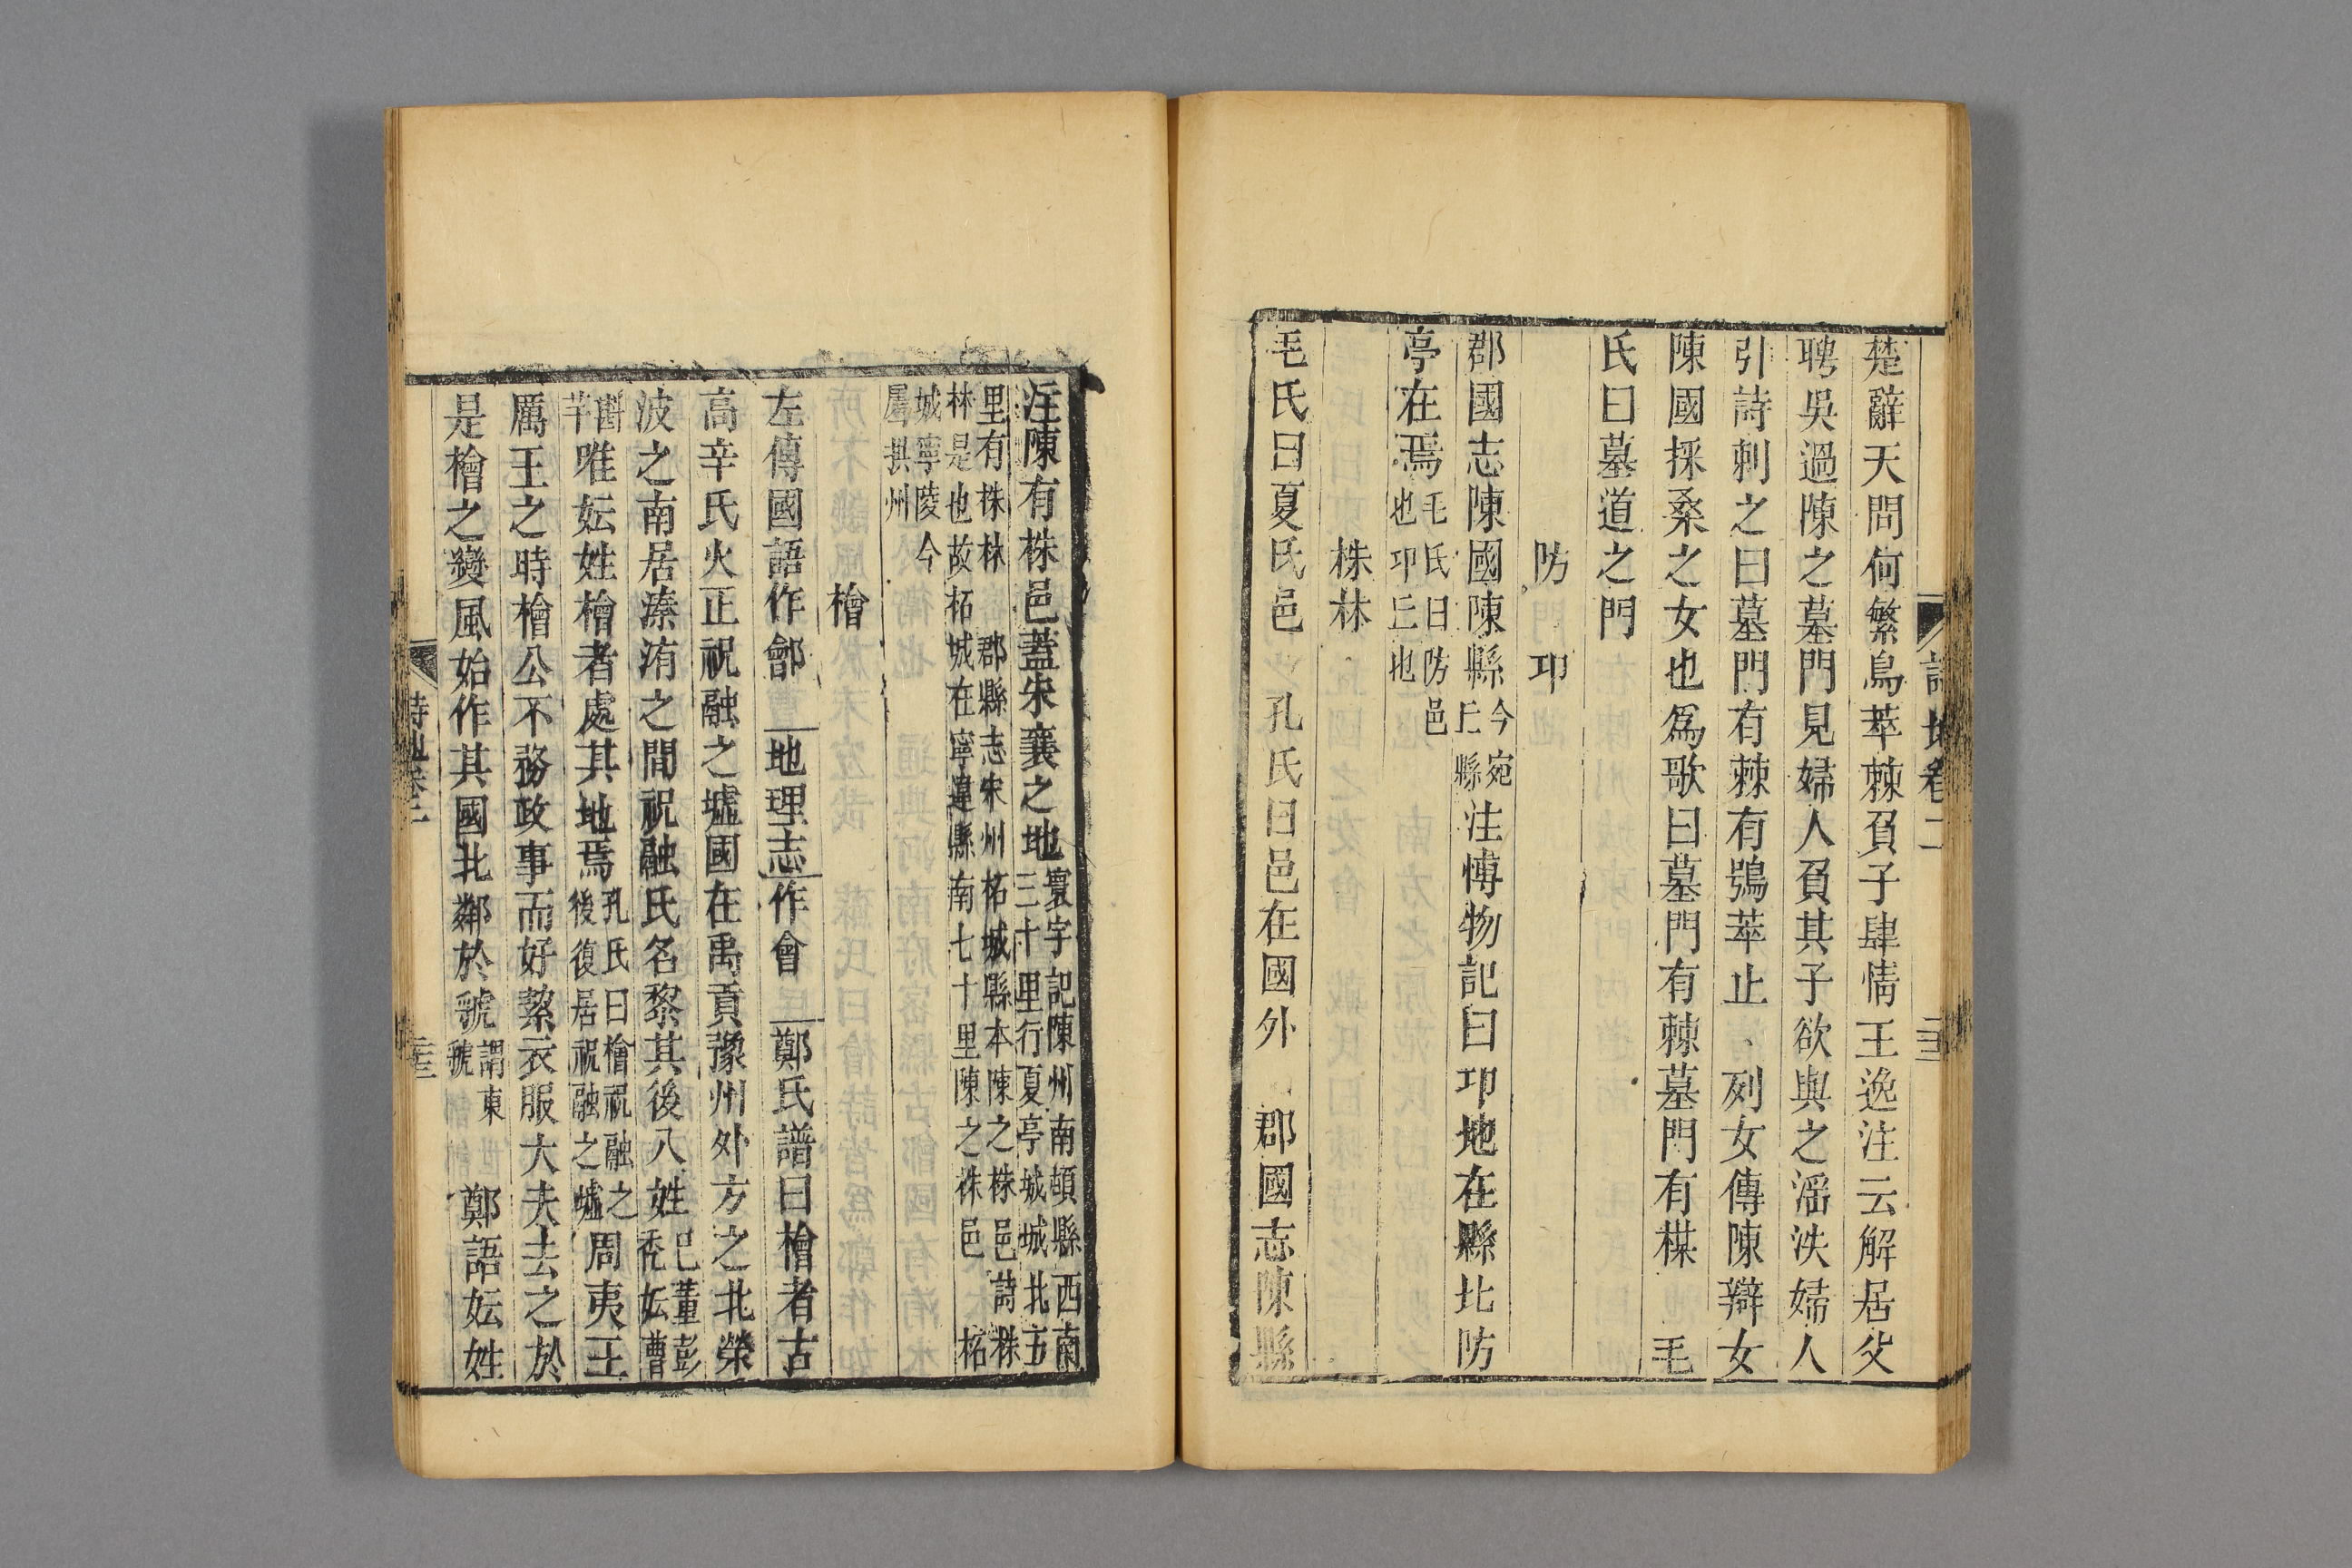 楚辭天問何繁鳥萃棘負子肆情王逸注云解居父
聘吳過陳之墓門見婦人負其子欲與之滛泆婦人
引詩刺之曰墓門有棘有鴞萃止 列女傳陳辯女
陳國採桑之女也爲歌曰墓門有棘墓門有楳 毛
氏曰墓道之門
防 卭
郡國志陳國陳縣今宛丘縣注博物記曰卭地在縣北防
亭在焉毛氏曰防邑也卭丘地
株林
毛氏曰夏氏邑 孔氏曰邑在國外 郡國志陳縣
注陳有株邑蓋朱襄之地寰宇記陳州南頓縣西南三十里行夏亭城城北五
里有株林 郡縣志宋州柘城縣本陳之株邑詩株林是也故柘城在寧陵縣南七十里陳之株邑 柘
城寧陵今屬拱州
檜
左傳國語作鄶 地理志作會 鄭氏譜曰檜者古
高辛氏火正祝融之墟國在禹貢豫州外方之北滎
波之南居溱洧之間祝融氏名黎其後八姓己董彭禿妘曹
斟芊唯妘姓檜者處其地焉孔氏曰檜祝融之後復居祝融之墟周夷王
厲王之時檜公不務政事而好絜衣服大夫去之於
是檜之變風始作其國北鄰於虢謂東虢 鄭語妘姓